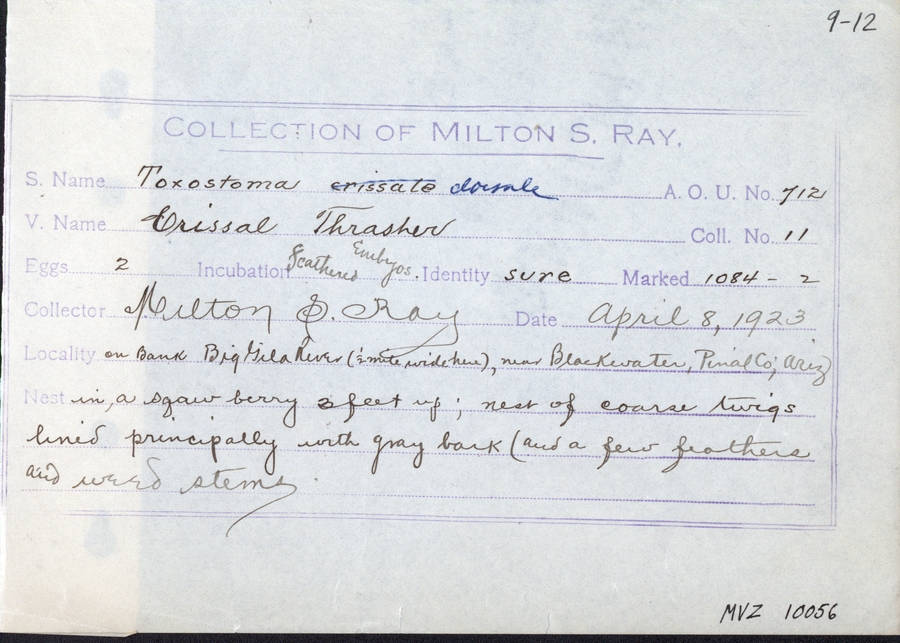 9-12
COLLECTION OF MILTON S. RAY.
S. Name Toxostoma crissale dorsale A. O. U. No. 712
V. Name Crissal Thrasher Coll. No. 11
Eggs 2 Incubation feathered Embryos. Identity sure Marked 1084-2
Collector Milton S. Ray Date April 8, 1923
Locality on Bank Big Gila River mile wide here), near Blackwater, Pinal Co; Ariz
Nest in a sqaw berry 3 feet up; nest of coarse twigs
lined principally with gray bark (and a few feathers
and weed stems
MVZ 10056